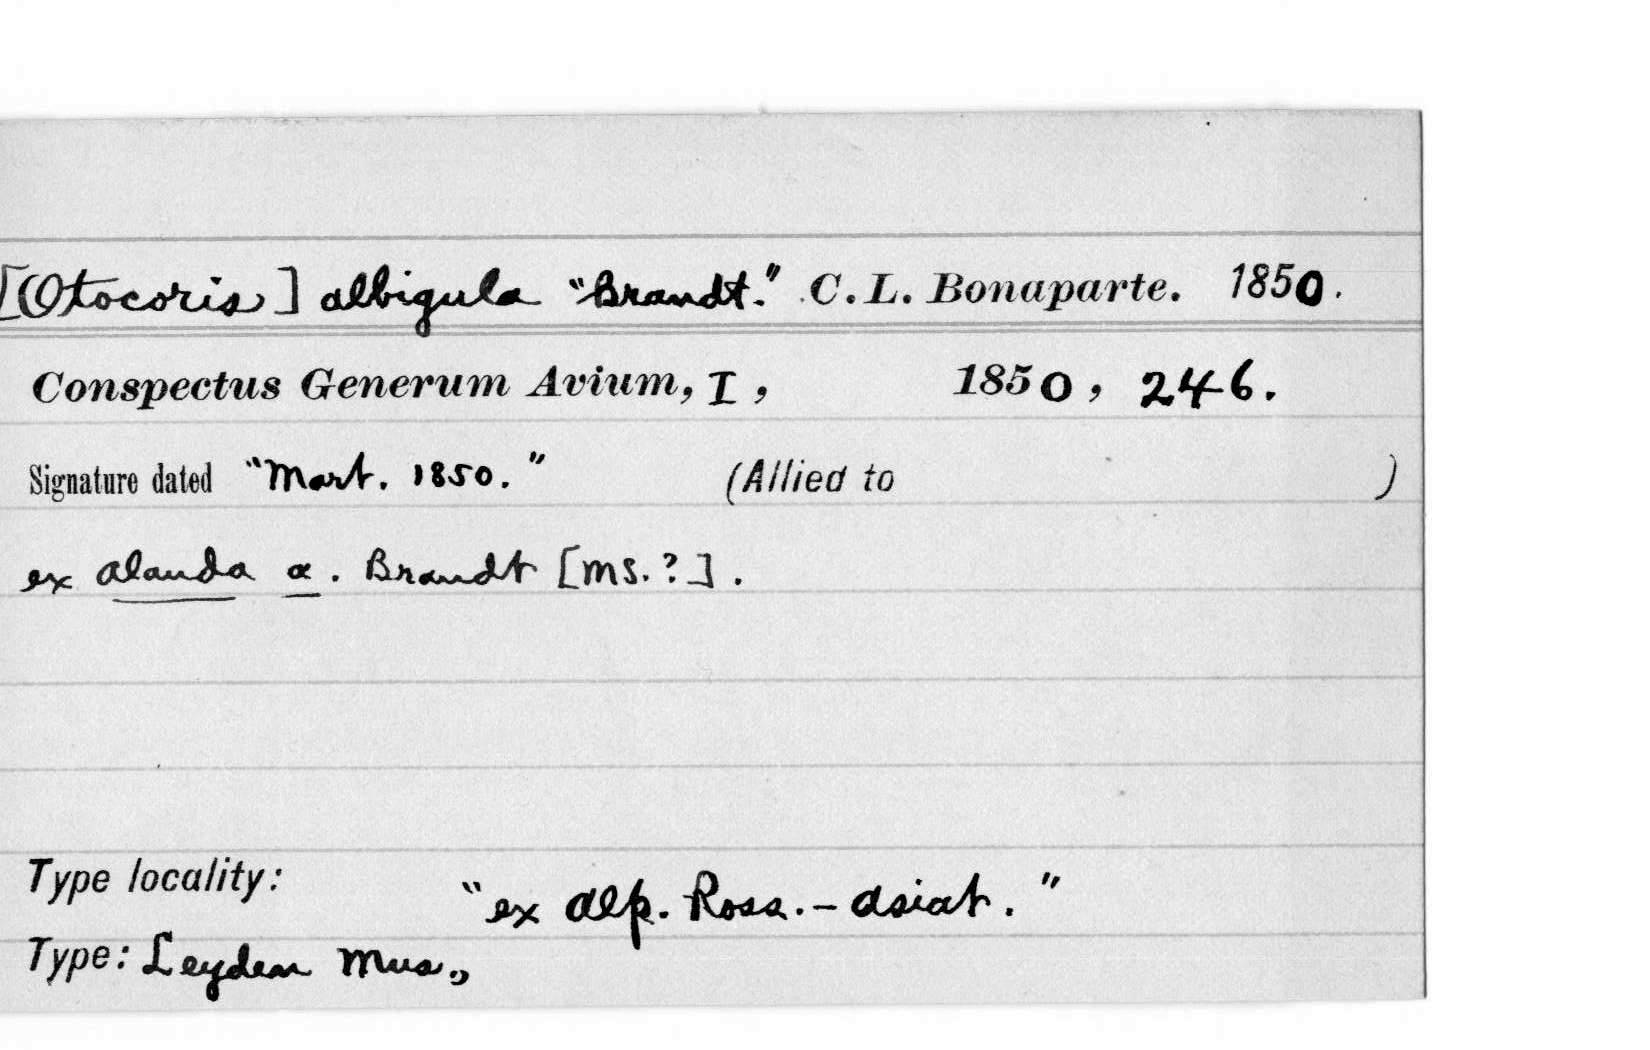 [Otocoris] albigula "Brandt." C. L. Bonaparte. 1850.
Conspectus Generum Avium, I, 1850, 246.
Signature dated "Mart. 1850." (Allied to )
ex Alauda α. Brandt [MS.?].
Type locality: "ex Alp. Ross.-Asiat."
Type: Leyden Mus.,